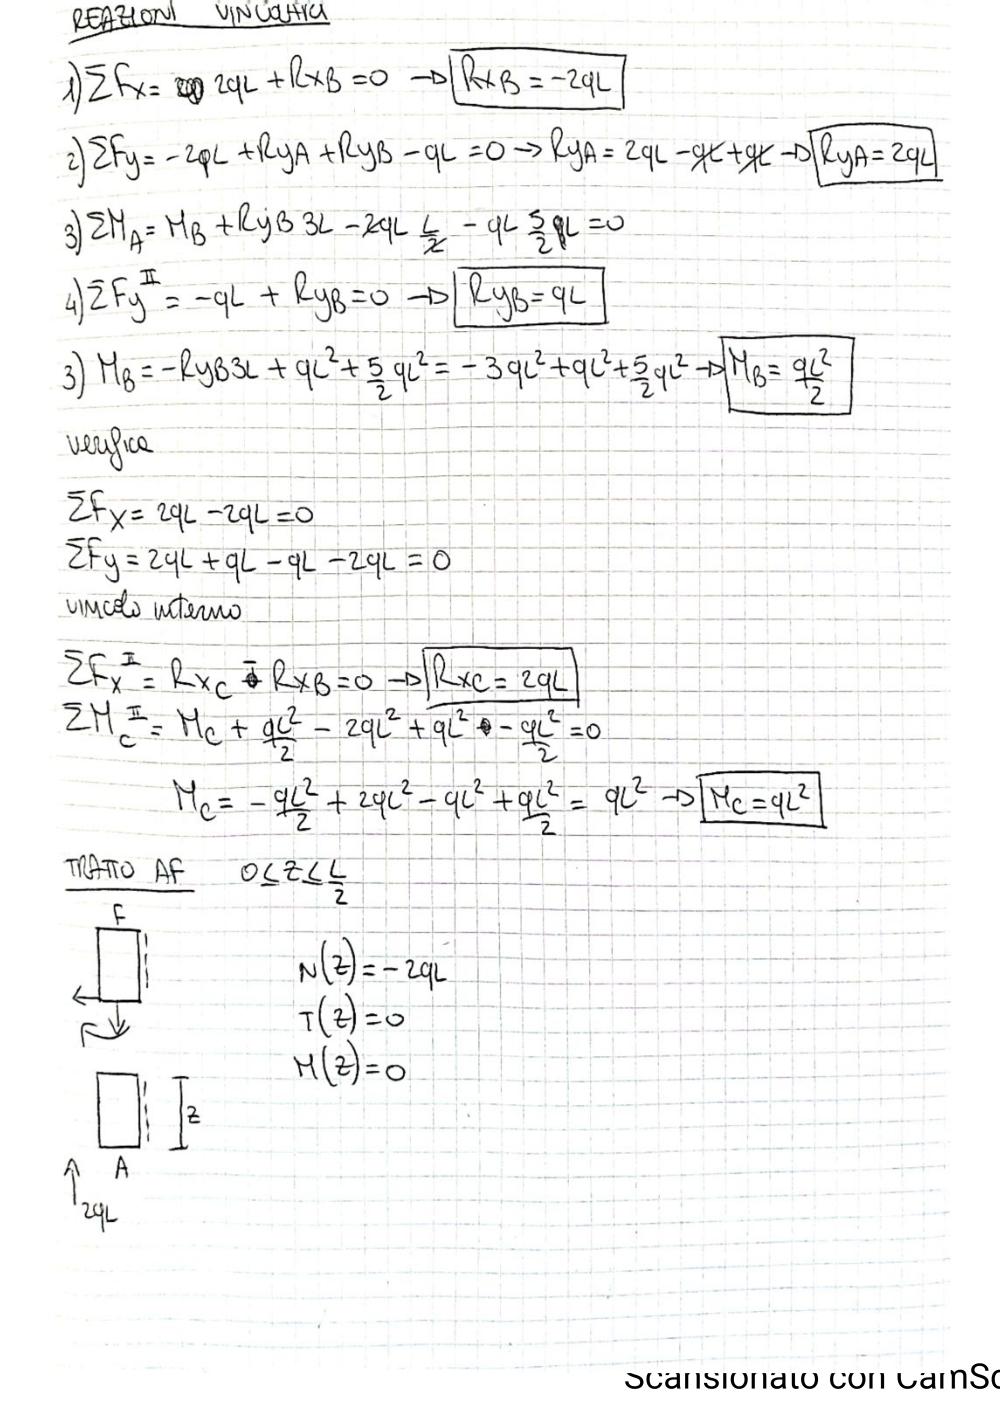 REAZIONI VINCOLARI
1) ΣFx = 2qL + RxB = 0 → RxB = -2qL
2) ΣFy = -2qL + RyA + RyB - qL = 0 → RyA = 2qL - qL + qL → RyA = 2qL
3) ΣM_A = M_B + RyB 3L - 2qL L/2 - qL 5/2 qL = 0
4) ΣFy^II = -qL + RyB = 0 → RyB = qL
3) M_B = -RyB3L + qL² + 5/2 qL² = -3qL² + qL² + 5/2 qL² → M_B = qL²/2
verifica
ΣFx = 2qL - 2qL = 0
ΣFy = 2qL + qL - qL - 2qL = 0
vincolo interno
ΣFx^II = Rxc + RxB = 0 → Rxc = 2qL
ΣM_C^II = M_C + qL²/2 - 2qL² + qL² - qL²/2 = 0
M_C = -qL²/2 + 2qL² - qL² + qL²/2 = qL² → M_C = qL²
TRATTO AF 0 ≤ Z ≤ L/2
F
N(Z) = -2qL
T(Z) = 0
M(Z) = 0
Z
A
2qL
Scansionato con CamSc